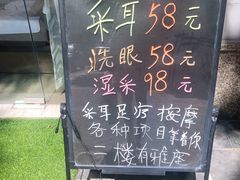 采耳58元
洗眼58元
湿采98元
采耳足疗按摩
各种项目等着你
二楼有雅座